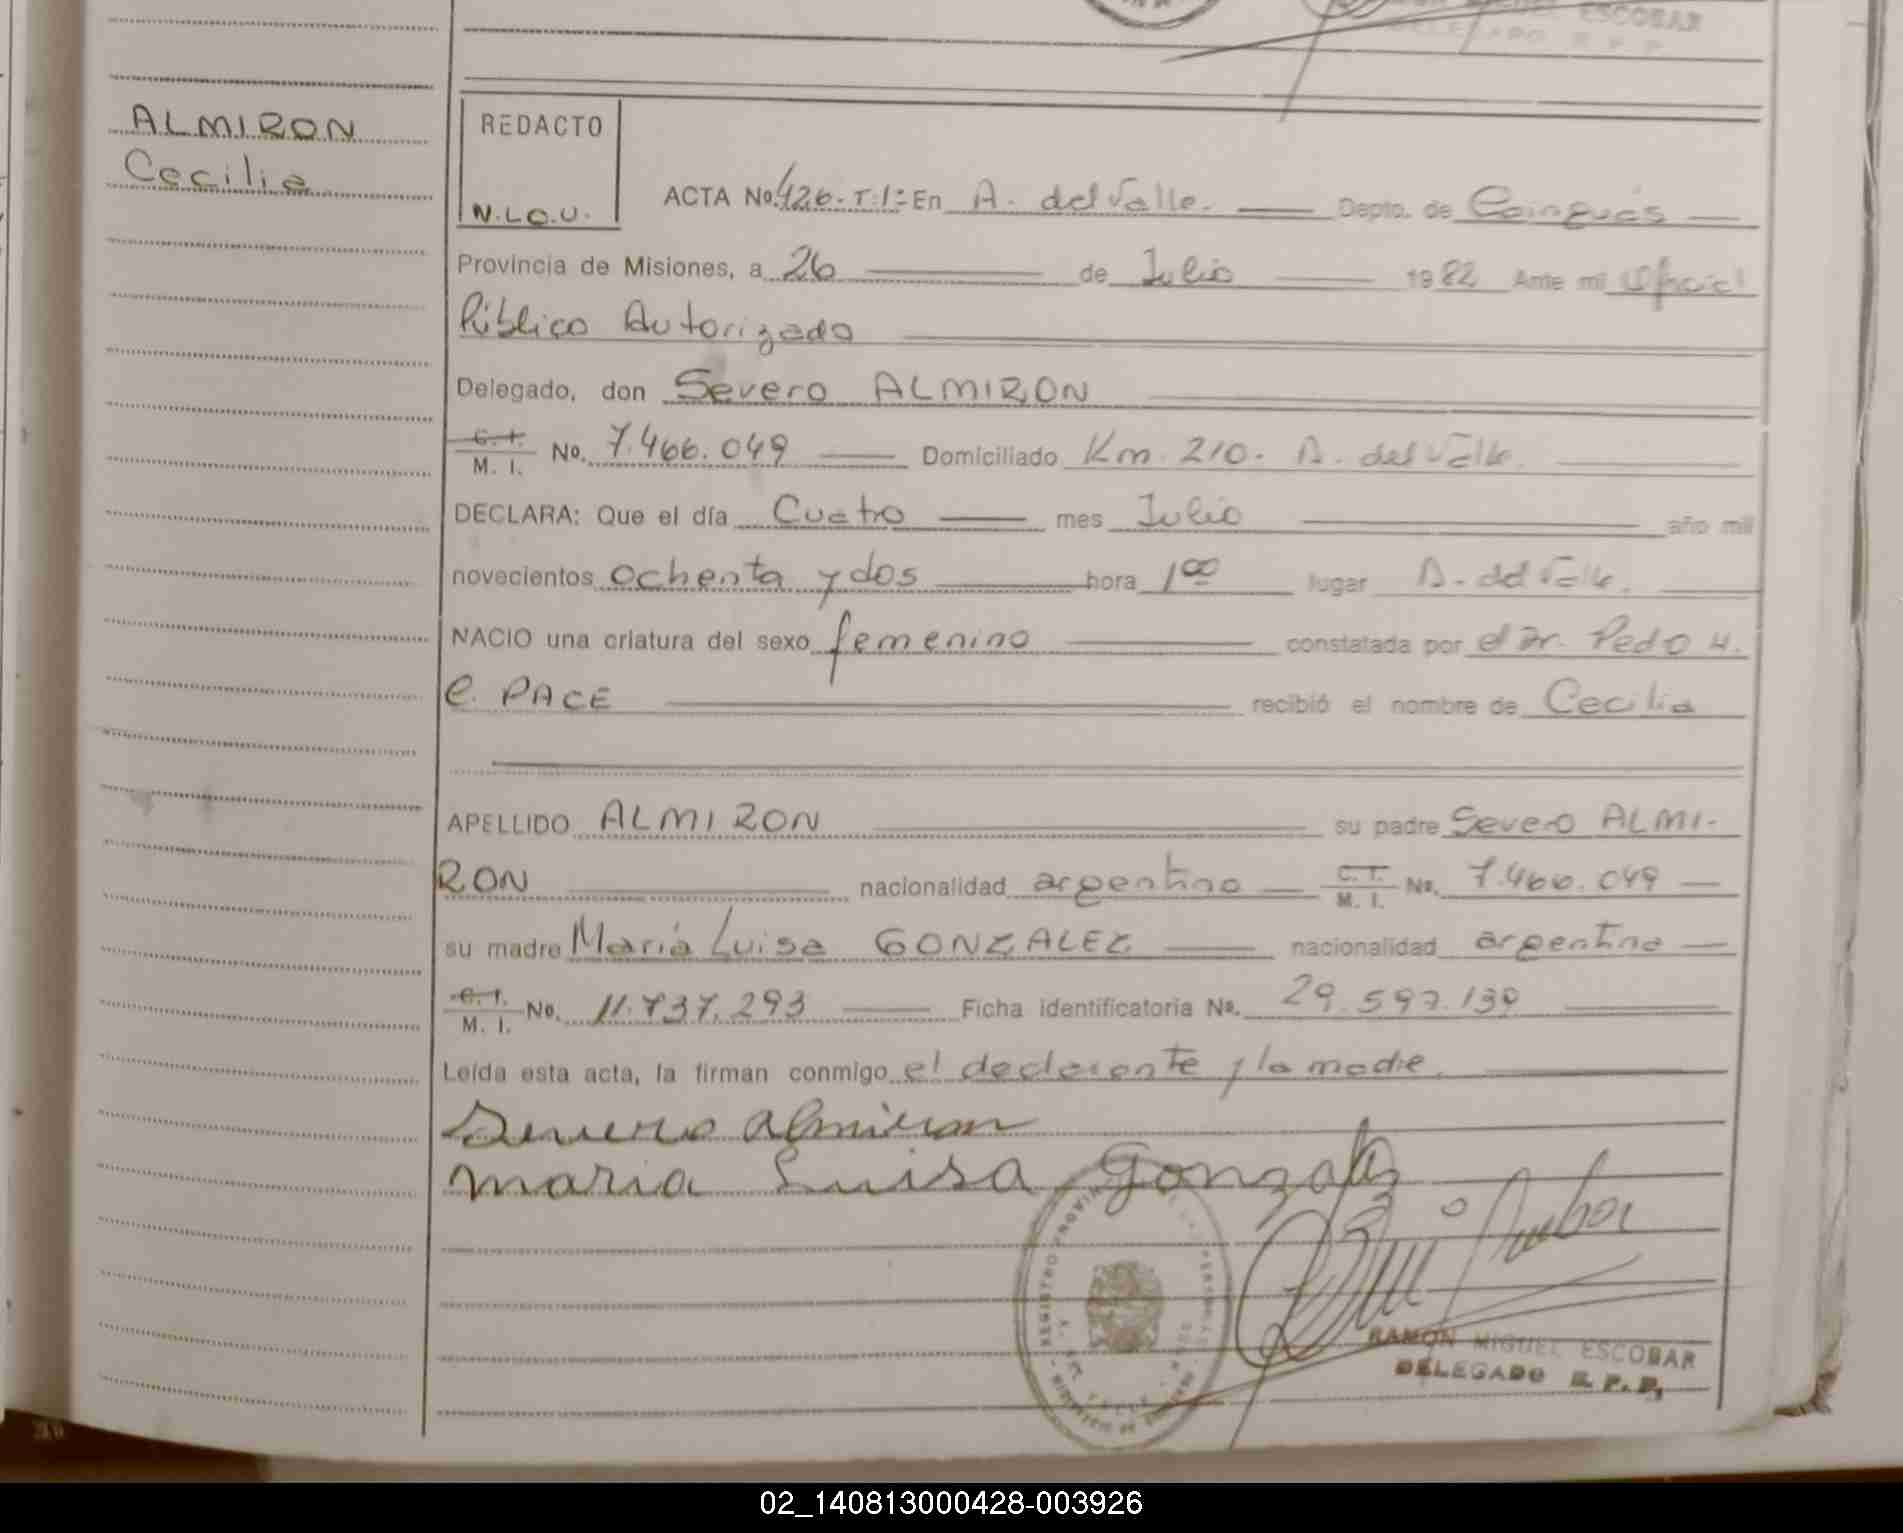 MIGUEL ESCOBAR
DELEGADO R. P. P.
ALMIRON
Cecilia
REDACTO
N.L.O.U.
ACTA No. 426. T: 1: En A. del Valle. Depto. de Cainguás
Provincia de Misiones, a 26 de Julio 1982 Ante mi Oficial
Público Autorizado
Delegado, don Severo ALMIRON
C. I. M. I. No. 7.466.049 Domiciliado Km. 210. A. del Valle.
DECLARA: Que el día Cuatro mes Julio año mil
novecientos ochenta y dos hora 1 00 lugar A. del Valle.
NACIO una criatura del sexo femenino constatada por el Dr. Pedo H.
C. PACE recibió el nombre de Cecilia
APELLIDO ALMIRON su padre Severo ALMI-
RON nacionalidad argentino C. I. M. I. No. 7.466.049
su madre María Luisa GONZALEZ nacionalidad argentina
C. I. M. I. No. 11.737.293 Ficha identificatoria No. 29.597.139
Leída esta acta, la firman conmigo el declarante y la madre.
Severo almiron
maria Luisa Gonzalez
RAMON MIGUEL ESCOBAR
DELEGADO R. P. P.
02_140813000428-003926